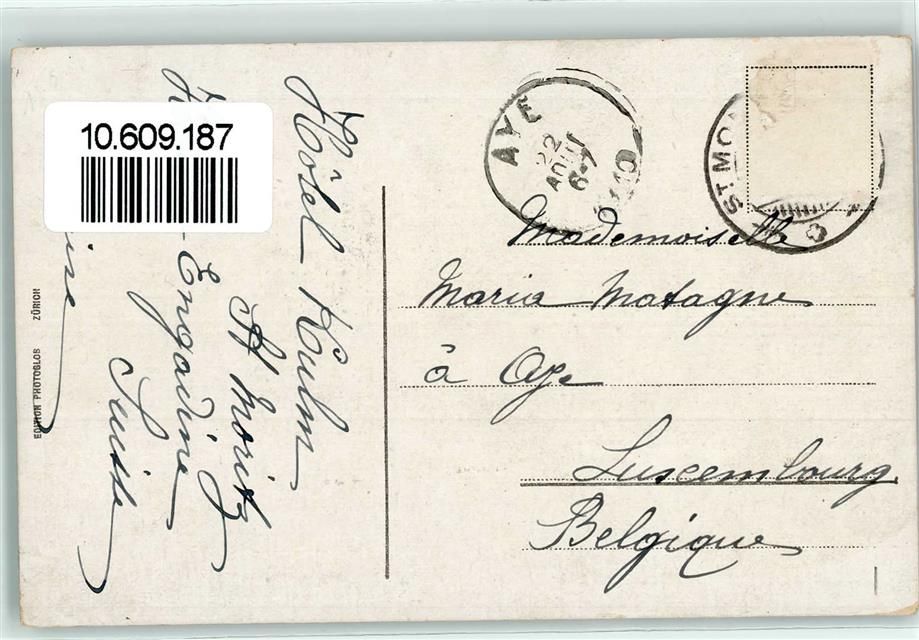 10.609.187
Hôtel Kulm
St Moritz
Engadine
Suisse
EDITION PHOTOGLOB ZÜRICH
AYE
22
AOUT
6-7
1910
ST. MO
Mademoiselle
Maria Matagne
à Aye
Luxembourg
Belgique